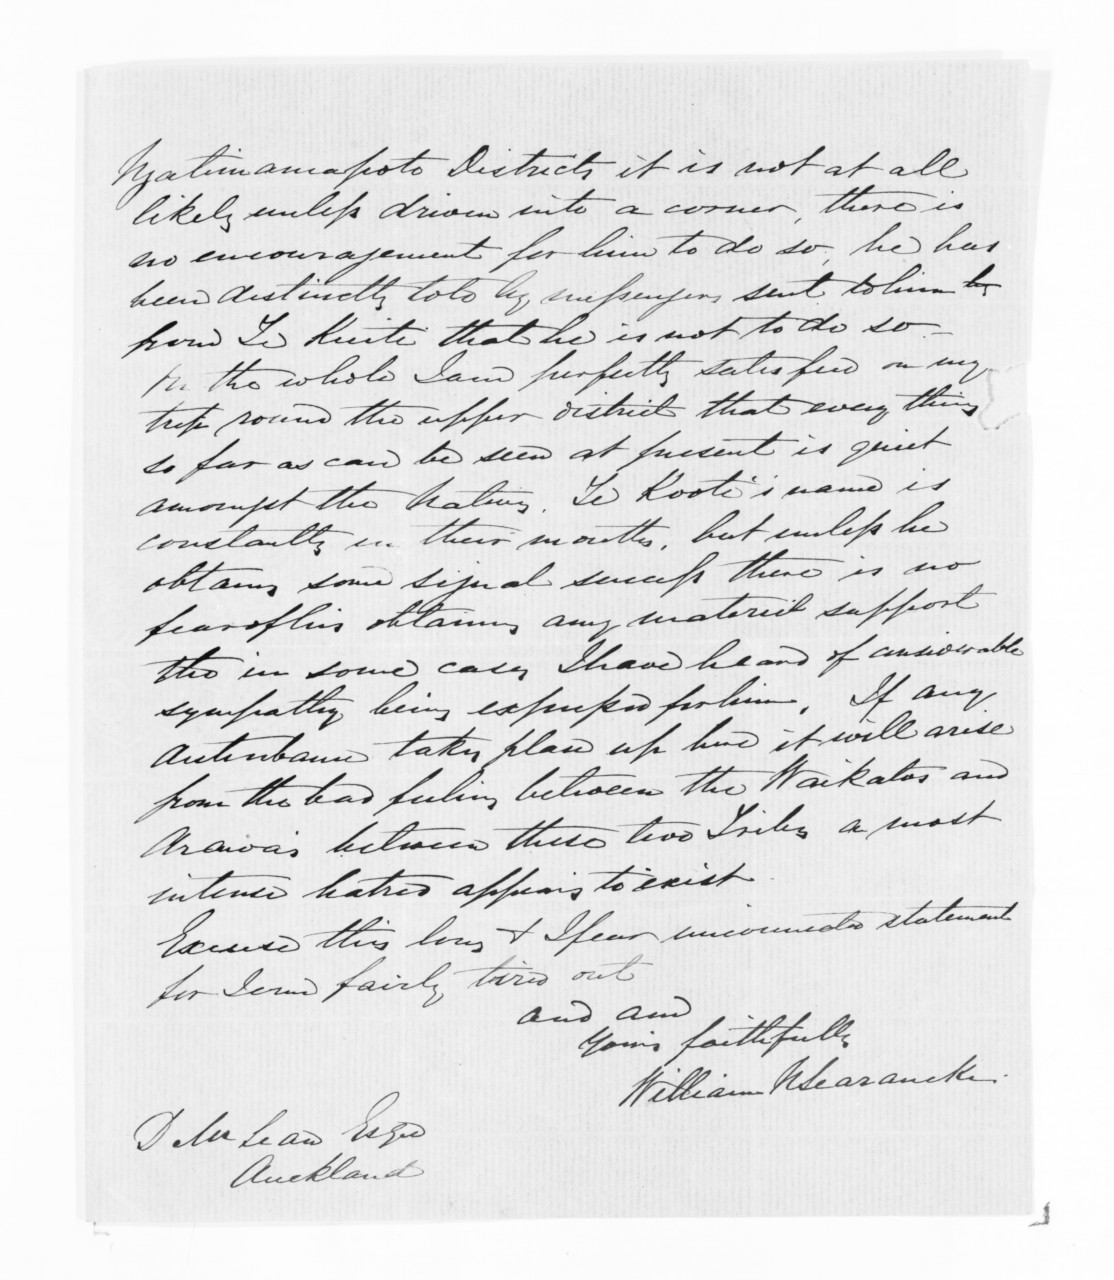 Ngatimaniapoto Districts it is not at all
likely unless driven into a corner, there is
no encouragement for him to do so, he has
been distinctly told by messengers sent to him by
from Te Kuiti that he is not to do so
On the whole I am perfectly satisfied on my
trip round the upper district that every thing
so far as can be seen at present is quiet
amongst the Natives. Te Kooti's name is
constantly in their mouths, but unless he
obtains some signal success there is no
fear of his obtaining any material support
tho in some cases I have heard of considerable
sympathy being expressed for him. If any
disturbance takes place up here it will arise
from the bad feeling between the Waikatos and
Arawa's between these two Tribes a most
intense hatred appears to exist.
Excuse this long & I fear unconnected statement
for I am fairly tired out
and am
Yours faithfully
William N Searancke.
D McLean Esqre
Auckland